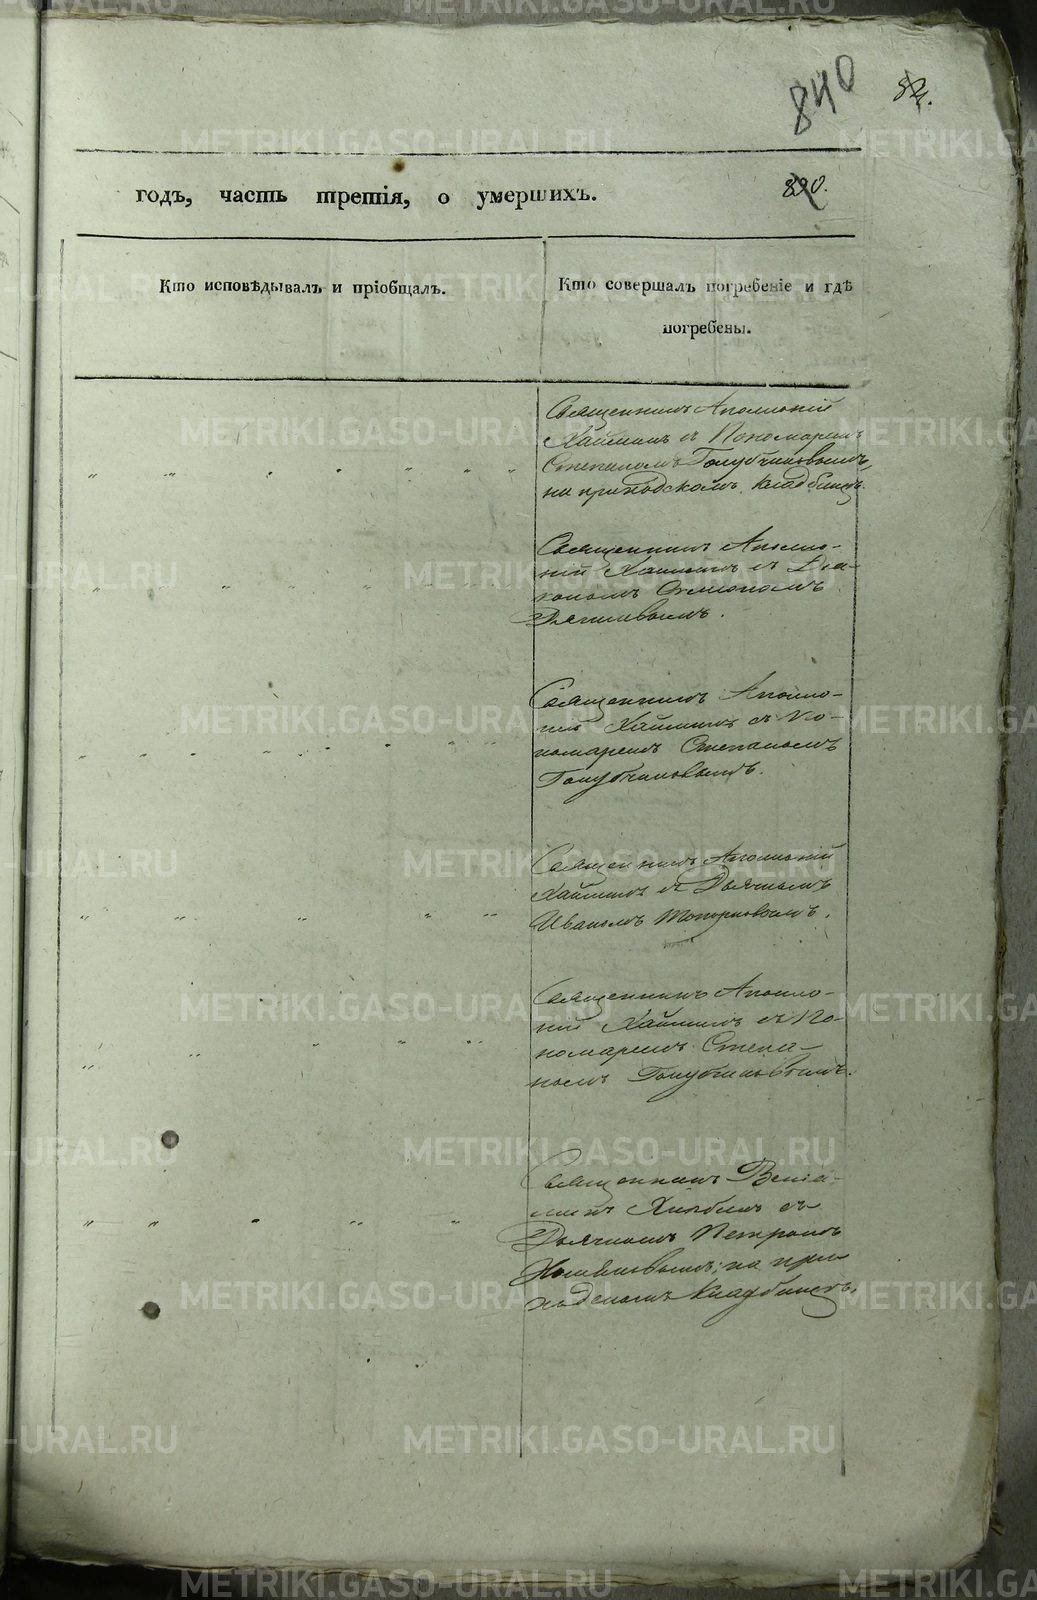 840
годъ, часть третія, о умершихъ.
Кто исповѣдывалъ и пріобщалъ.
Кто совершалъ погребеніе и гдѣ
погребены.
Священникъ Аполлоній
с Пономаремъ
Степаномъ Голубчиковымъ,
на приходскомъ кладбищѣ.
Священникъ Аполло-
ній с Діа-
кономъ
Священникъ Аполло-
ній с По-
номаремъ Степаномъ
Голубчиковымъ.
Священникъ Аполлоній
с Дьячкомъ
Иваномъ Топорковымъ.
Священникъ Аполло-
ній с По-
номаремъ Степа-
номъ Голубчиковымъ.
Священникъ Веніа-
минъ с
Дьячкомъ Петромъ
на при-
ходскомъ кладбищѣ.
METRIKI.GASO-URAL.RU